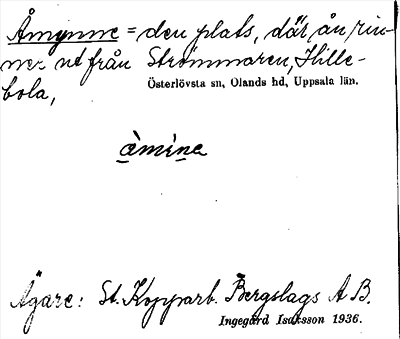 Åmynne = den plats, där ån rin-
ner ut från Strömmaren, Hille-
Österlövsta sn, Olands hd, Uppsala län.
bola,
àmìne
Ägare: St. Kopparb. Bergslags A B.
Ingegärd Isaksson 1936.